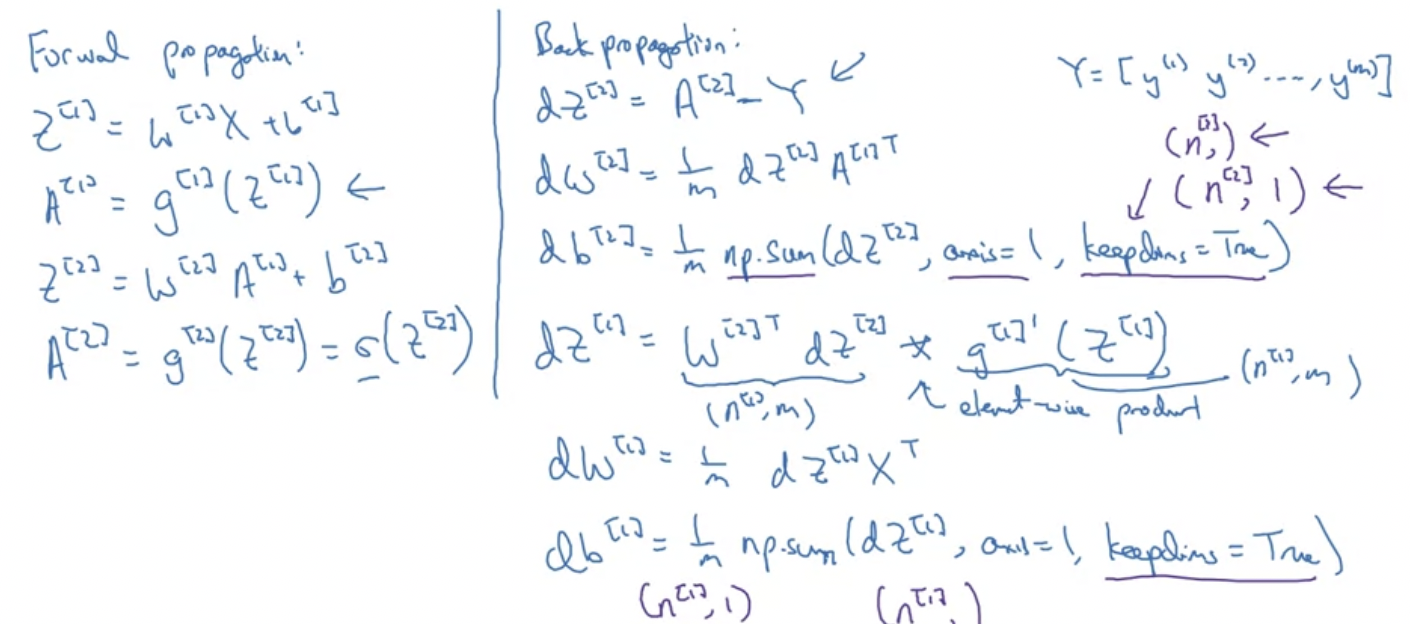 Forwal propagation:
Z^[1] = W^[1]X + b^[1]
A^[1] = g^[1](Z^[1]) ←
Z^[2] = W^[2] A^[1] + b^[2]
A^[2] = g^[2](Z^[2]) = σ(Z^[2])
Back propagation:
dZ^[2] = A^[2] - Y ↙
dW^[2] = 1/m dZ^[2] A^[1]T
db^[2] = 1/m np.sum(dZ^[2], axis=1, keepdims=True)
dZ^[1] = W^[2]T dZ^[2] * g^[1]'(Z^[1])
(n^[1], m) ↖ element-wise product (n^[1], m)
dW^[1] = 1/m dZ^[1] X^T
db^[1] = 1/m np.sum(dZ^[1], axis=1, keepdims=True)
(n^[1], 1) (n^[1],)
Y = [y^(1) y^(2) ...., y^(m)]
(n^[2],) ←
↙ (n^[2], 1) ←